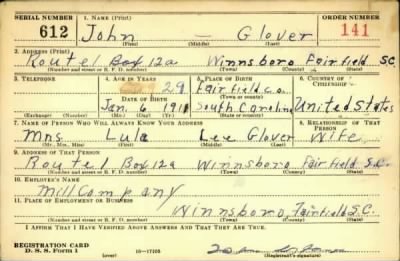 SERIAL NUMBER 1. NAME (Print) ORDER NUMBER
612 John – Glover 141
(First) (Middle) (Last)
2. ADDRESS (Print)
Route 1 Box 12a Winnsboro Fairfield S.C.
(Number and street or R. F. D. number) (Town) (County) (State)
3. TELEPHONE 4. AGE IN YEARS 5. PLACE OF BIRTH 6. COUNTRY OF CITIZENSHIP
29 Fairfield Co.
DATE OF BIRTH (Town) (County)
Jan. 6 South Carolina United States
(Exchange) (Number) (Mo.) (Day) (Yr.) (State or country)
7. NAME OF PERSON WHO WILL ALWAYS KNOW YOUR ADDRESS 8. RELATIONSHIP OF THAT PERSON
Mrs Lula Lee Glover Wife
(Mr., Mrs., Miss) (First) (Middle) (Last)
9. ADDRESS OF THAT PERSON
Route 1 Box 12a Winnsboro Fairfield S.C.
(Number and street or R. F. D. number) (Town) (County) (State)
10. EMPLOYER'S NAME
Mill Company
11. PLACE OF EMPLOYMENT OR BUSINESS
Winnsboro, Fairfield S.C.
(Number and street or R. F. D. number) (Town) (County) (State)
I AFFIRM THAT I HAVE VERIFIED ABOVE ANSWERS AND THAT THEY ARE TRUE.
REGISTRATION CARD
D. S. S. Form 1 (over) 16—17105 (Registrant's signature)